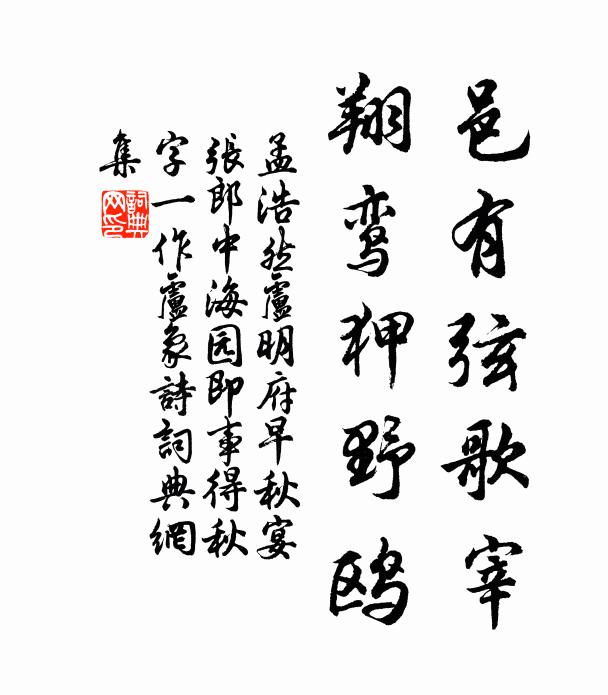 邑有弦歌宰
翔鸾狎野鸥
孟浩然盧明府早秋宴
張郎中海园即事得秋
字一作盧象詩詞典網
集
詞典網印